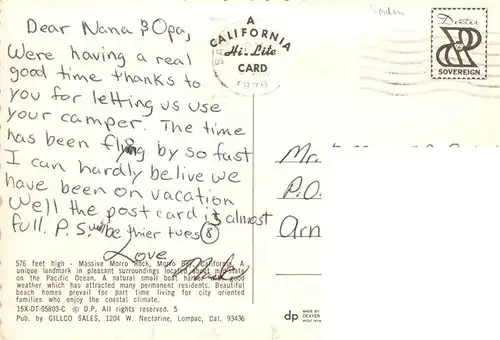 Dear Nana & Opa,
Were having a real
good time thanks to
you for letting us use
your camper. The time
has been flying by so fast
I can hardly be live we
have been on vacation
Well the post card is almost
full. P.S. will be thier tues 8
Love
A
CALIFORNIA
Hi-Lite
CARD
Dexter
SOVEREIGN
P.O.
576 feet high - Massive Morro Rock, Morro Bay, California. A
unique landmark in pleasant surroundings located about mid-state
on the Pacific Ocean. A natural small boat harbor and good
weather which has attracted many permanent residents. Beautiful
beach homes prevail for part time living for city oriented
families who enjoy the coastal climate.
15X-DT-95803-C © D.P. All rights reserved. 5
Pub. by GILLCO SALES, 1204 W. Nectarine, Lompac, Cal. 93436
dp
MADE BY
DEXTER